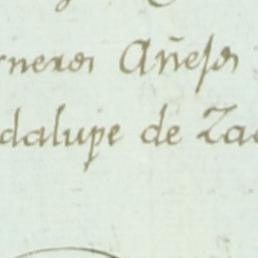 rneros Añejos
dalupe de Zac